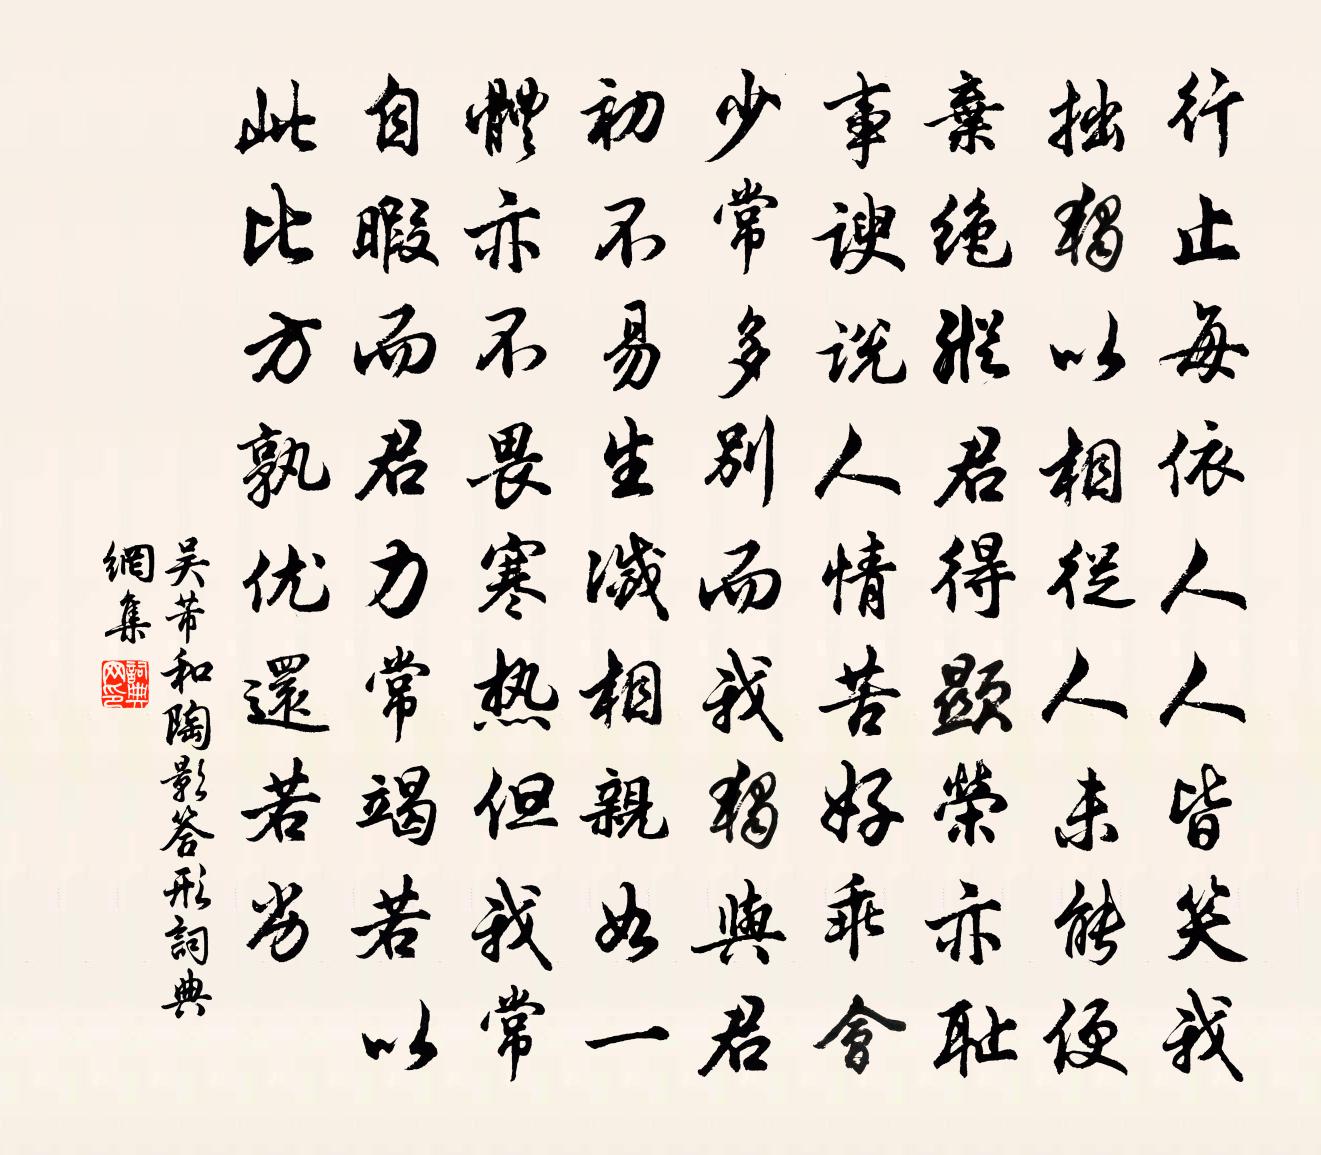 行止每依人人皆笑我
拙獨以相從人未能便
棄绝縱君得顯榮亦耻
事謏説人情苦好乖會
少常多别而我獨與君
初不易生滅相親如一
體亦不畏寒热但我常
自暇而君力常竭若以
此比方孰优還若劣
吴芾和陶影答形詞典
網集
詞典网印